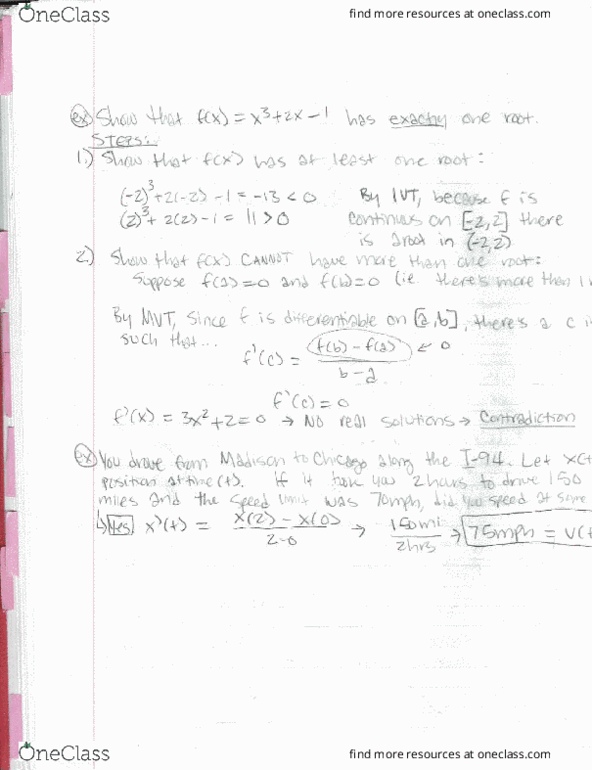 OneClass
find more resources at oneclass.com
ex Show that f(x) = x³+2x-1 has exactly one root.
STEPS:
1.) Show that f(x) has at least one root:
(-2)³+2(-2)-1=-13<0 By IVT, because f is
(2)³+2(2)-1=11>0 continuos on [-2,2] there
is a root in (-2,2)
2.) Show that f(x) CANNOT have more than one root:
Suppose f(a)=0 and f(b)=0 (i.e. there's more than 1
By MVT, since f is differentiable on [a,b], there's a c i
such that...
f'(c) = f(b)-f(a) ← 0
b-a
f'(c)=0
f'(x) = 3x²+2=0 → No real solutions → Contradiction
ex You drove from Madison to Chicago along the I-94. Let x(t
position at time (t). If it took you 2 hours to drive 150
miles and the speed limit was 70mph, did you speed at some
↳ Yes x'(t) = x(2)-x(0) → 150mi → 75mph = v(t
2-0 2hrs
OneClass
find more resources at oneclass.com